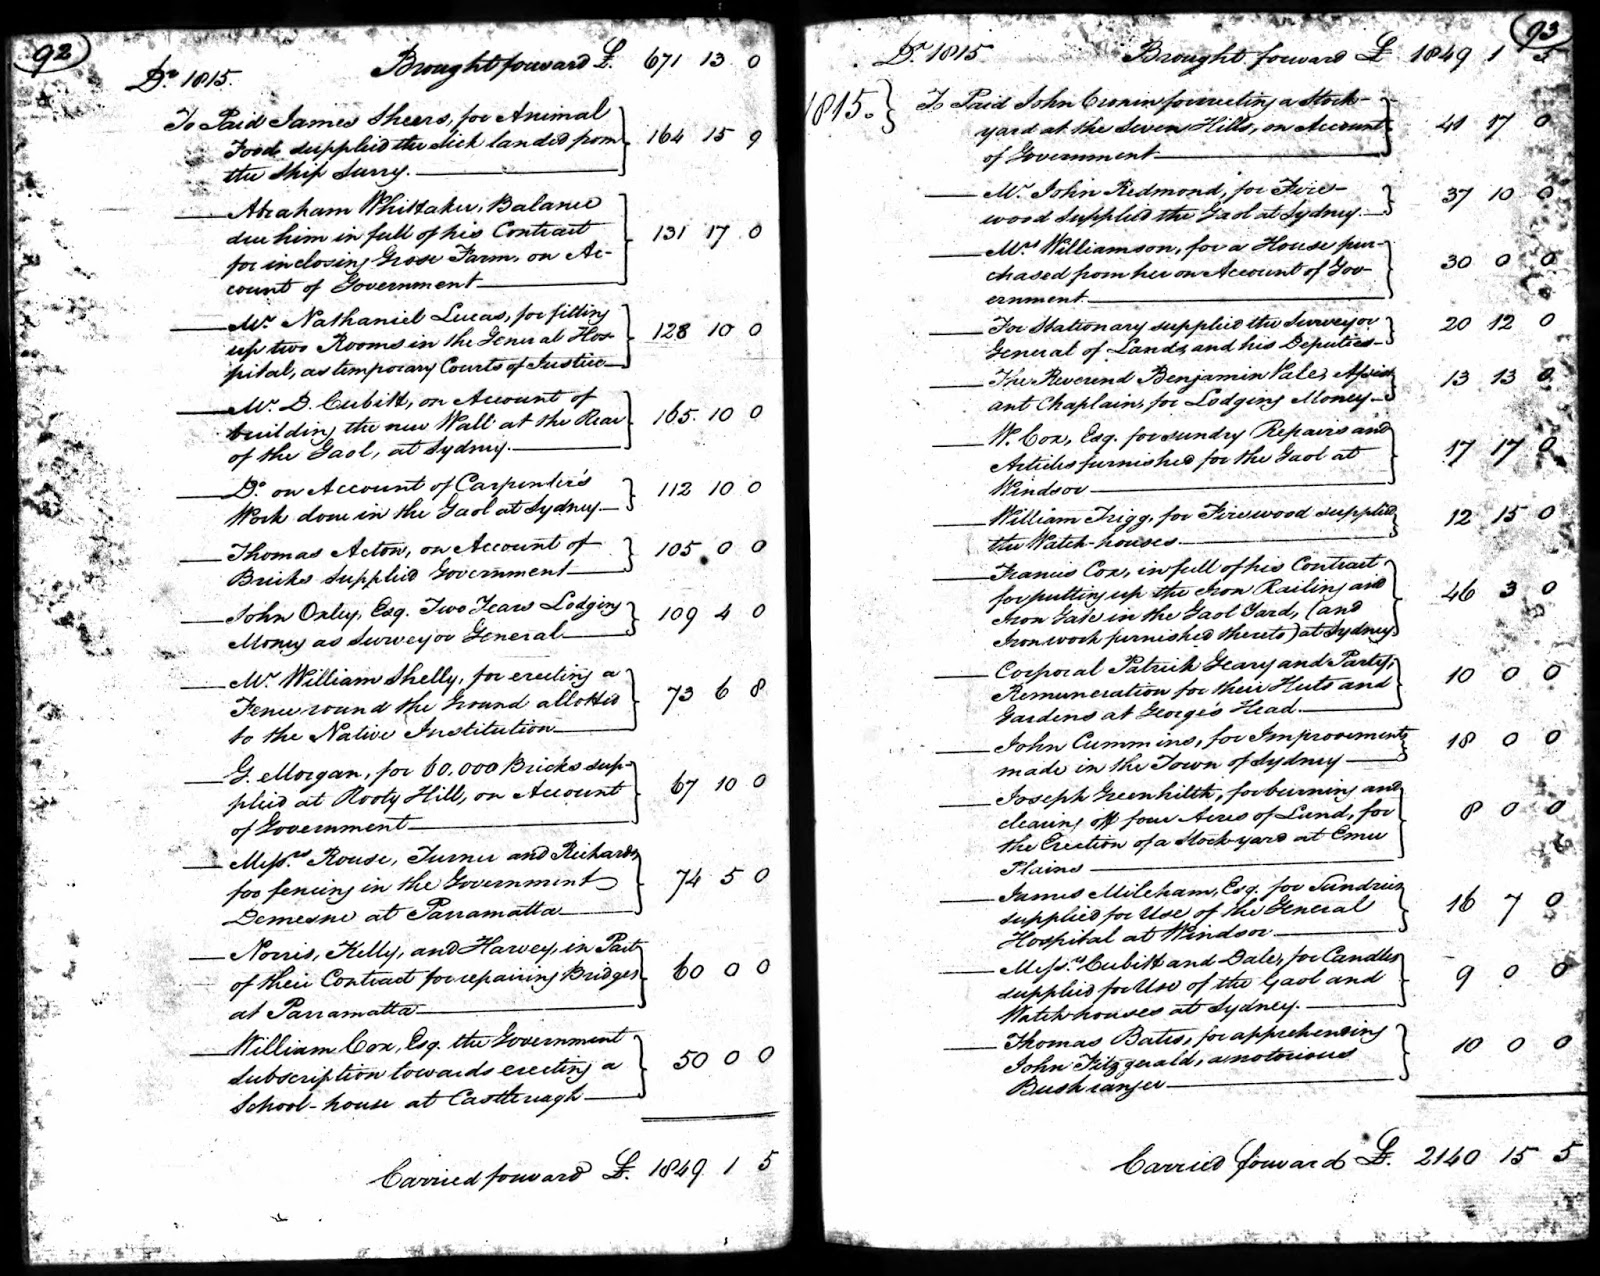 92
Dr. 1815. Brought forward £. 671 13 0
To Paid James Sheers, for Animal
Food supplied the Sick landed from 164 15 9
the Ship Surry.
Abraham Whittaker, Balance
due him in full of his Contract 131 17 0
for inclosing Grose Farm, on Ac-
count of Government
Mr. Nathaniel Lucas, for fitting
up two Rooms in the General Hos- 128 10 0
pital, as temporary Courts of Justice
Mr. D. Cubitt, on Account of
building the new Wall at the Rear 165 10 0
of the Gaol, at Sydney.
Do. on Account of Carpenter's 112 10 0
Work done in the Gaol at Sydney
Thomas Acton, on Account of 105 0 0
Bricks supplied Government
John Oxley, Esq. Two Years Lodging 109 4 0
Money as Surveyor General
Mr. William Shelly, for erecting a
Fence round the Ground allotted 73 6 8
to the Native Institution
G. Morgan, for 60,000 Bricks sup-
plied at Rooty Hill, on Account 67 10 0
of Government
Messrs. Rouse, Turner and Richards
for fencing in the Government 74 5 0
Demesne at Parramatta
Norris, Kelly, and Harvey, in Part
of their Contract for repairing Bridges 60 0 0
at Parramatta
William Cox, Esq. the Government
Subscription towards erecting a 50 0 0
School-house at Castlereagh
Carried forward £. 1849 1 5
93
Dr. 1815 Brought forward £ 1849 1 5
1815. }
To Paid John Cronin for erecting a Stock-
yard at the Seven Hills, on Account 41 17 0
of Government
Mr. John Redmond, for Fire- 37 10 0
wood supplied the Gaol at Sydney
Mrs. Williamson, for a House pur-
chased from her on Account of Gov- 30 0 0
ernment
For Stationary supplied the Surveyor 20 12 0
General of Lands, and his Deputies
The Reverend Benjamin Vale, Assist 13 13 0
ant Chaplain, for Lodging Money
W. Cox, Esq. for sundry Repairs and
Articles furnished for the Gaol at 17 17 0
Windsor
William Trigg, for Firewood supplied 12 15 0
the Watch-houses
Francis Cox, in full of his Contract
for putting up the Iron Railing and 46 3 0
Iron Gate in the Gaol Yard, (and
Iron work furnished thereto) at Sydney
Corporal Patrick Geary and Party,
Remuneration for their Huts and 10 0 0
Gardens at George's Head.
John Cummins, for Improvements 18 0 0
made in the Town of Sydney
Joseph Greenhilth, for burning and
clearing off four Acres of Land, for 8 0 0
the Erection of a Stock-yard at Emu
Plains
James Mileham, Esq. for Sundries
supplied for Use of the General 16 7 0
Hospital at Windsor
Messrs. Cubitt and Dale, for Candles
supplied for Use of the Gaol and 9 0 0
Watch-houses at Sydney.
Thomas Bates, for apprehending
John Fitzgerald, a notorious 10 0 0
Bushranger
Carried forward £. 2140 15 5